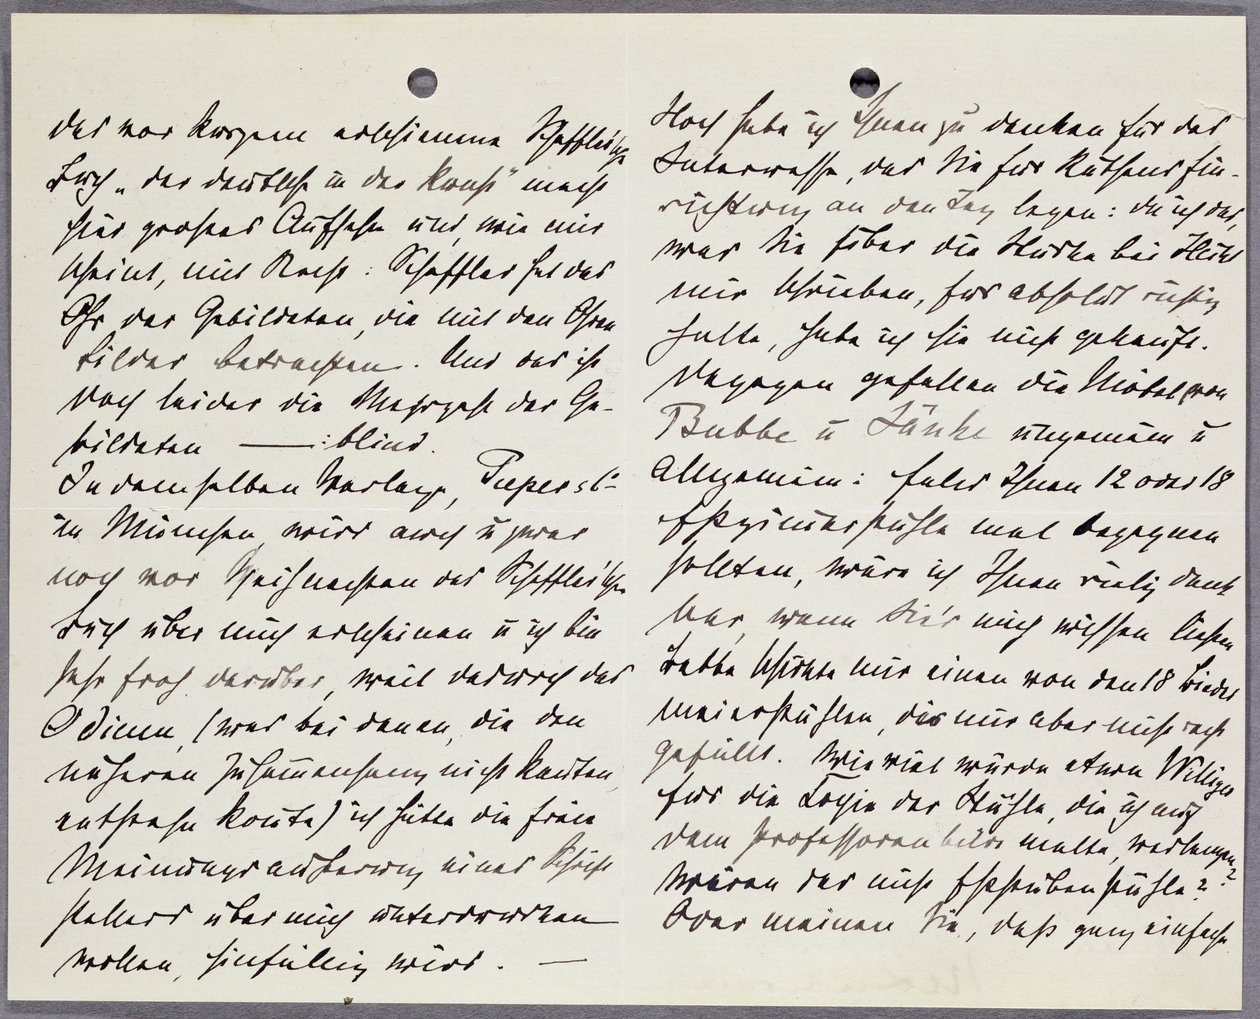 das vor kurzem erschienene Scheffler'sche
Buch „der deutsche u der Kunst" macht
hier grosses Aufsehn und, wie mir
scheint, mit Recht: Scheffler hat das
Ohr der Gebildeten, die mit den Ohren
Bilder betrachten. Und das ist
doch leider die Mehrzahl der Ge-
bildeten — : blind.
In demselben Verlage, Pieper & C°
in München, wird auch u zwar
noch vor Weihnachten das Scheffler'sche
Buch über mich erscheinen u ich bin
sehr froh darüber, weil dadurch das
Odium, (was bei denen, die den
näheren Zusammenhang nicht kannten,
entstehn konnte) ich hätte die freie
Meinungsäußerung eines Schrift
stellers über mich unterdrücken
wollen, hinfällig wird. —
Noch habe ich Ihnen zu danken für das
Interesse, das Sie für Käthens Ein-
richtung an den Tag legen: da ich das,
was Sie über die Stühle bei
mir schrieben, für absolut richtig
halte, habe ich sie nicht gekauft.
Dagegen gefallen die Möbel von
Babbe u Jänke ungemein u
Allgemein: falls Ihnen 12 oder 18
Eßzimmerstühle mal begegnen
sollten, wäre ich Ihnen riesig dank
bar, wenn Sie's mich wissen ließen
Babbe schickte mir einen von den 18 Bieder
meierstühlen, der mir aber nicht recht
gefällt. Wie viel würde etwa
für die Copie der Stühle, die ich auf
dem Professorenbilde malte, verlangen?
Wären das nicht Eßstubenstühle?
Oder meinen Sie, daß ganz einfache